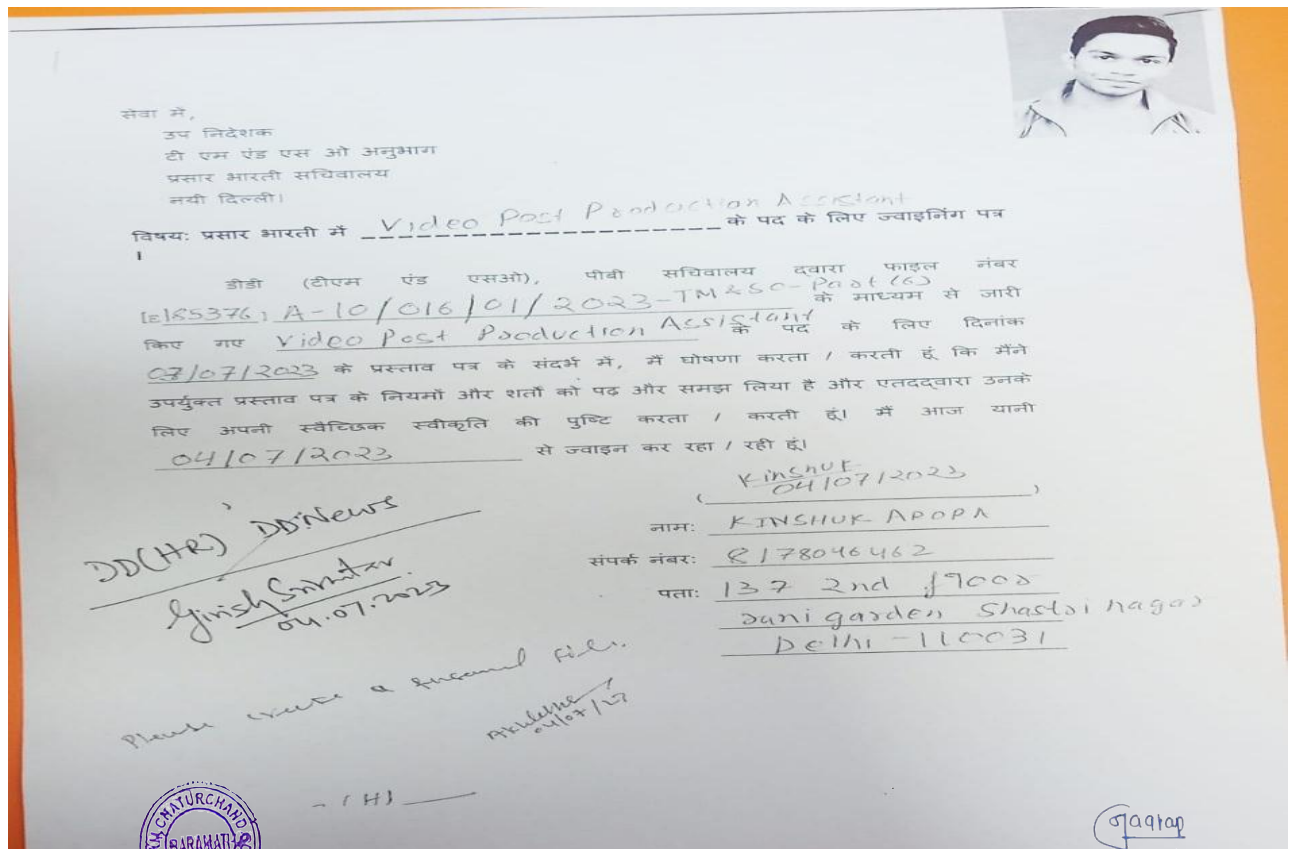 सेवा में,
उप निदेशक
टी एम एंड एस ओ अनुभाग
प्रसार भारती सचिवालय
नयी दिल्ली।
विषय: प्रसार भारती में Video Post Production Assistant के पद के लिए ज्वाइनिंग पत्र
।
डीडी (टीएम एंड एसओ), पीबी सचिवालय द्वारा फाइल नंबर
[E185376] A-10/016/01/2023-TM&SO-Part(6) के माध्यम से जारी
किए गए Video Post Production Assistant के पद के लिए दिनांक
03/07/2023 के प्रस्ताव पत्र के संदर्भ में, मैं घोषणा करता / करती हूं कि मैंने
उपर्युक्त प्रस्ताव पत्र के नियमों और शर्तों को पढ और समझ लिया है और एतदद्वारा उनके
लिए अपनी स्वैच्छिक स्वीकृति की पुष्टि करता / करती हूं। मैं आज यानी
04/07/2023 से ज्वाइन कर रहा / रही हूं।
Kinshuk
( 04/07/2023 )
नाम: KINSHUK ARORA
संपर्क नंबर: 8178046462
पता: 137 2nd floor
rani garden Shastri nagar
Delhi - 110031
DD(HR) DD News
04.07.2023
Please create a personal file.
04/07/23
- (H)
CHATURCHAND
BARAMATI